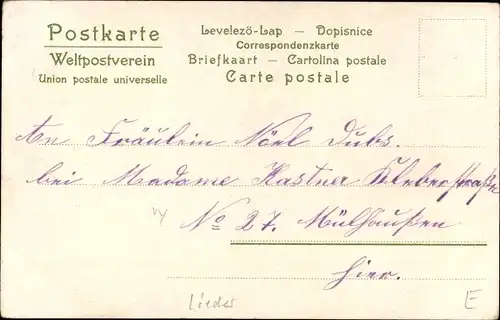 Postkarte
Weltpostverein
Union postale universelle
Levelező-Lap — Dopisnice
Correspondenzkarte
Briefkaart — Cartolina postale
Carte postale
An Fräulein Nöel Dubs.
bei Madame Kastner Kleberstraße
No 27. Mülhaußen
hier.
Lieder
E